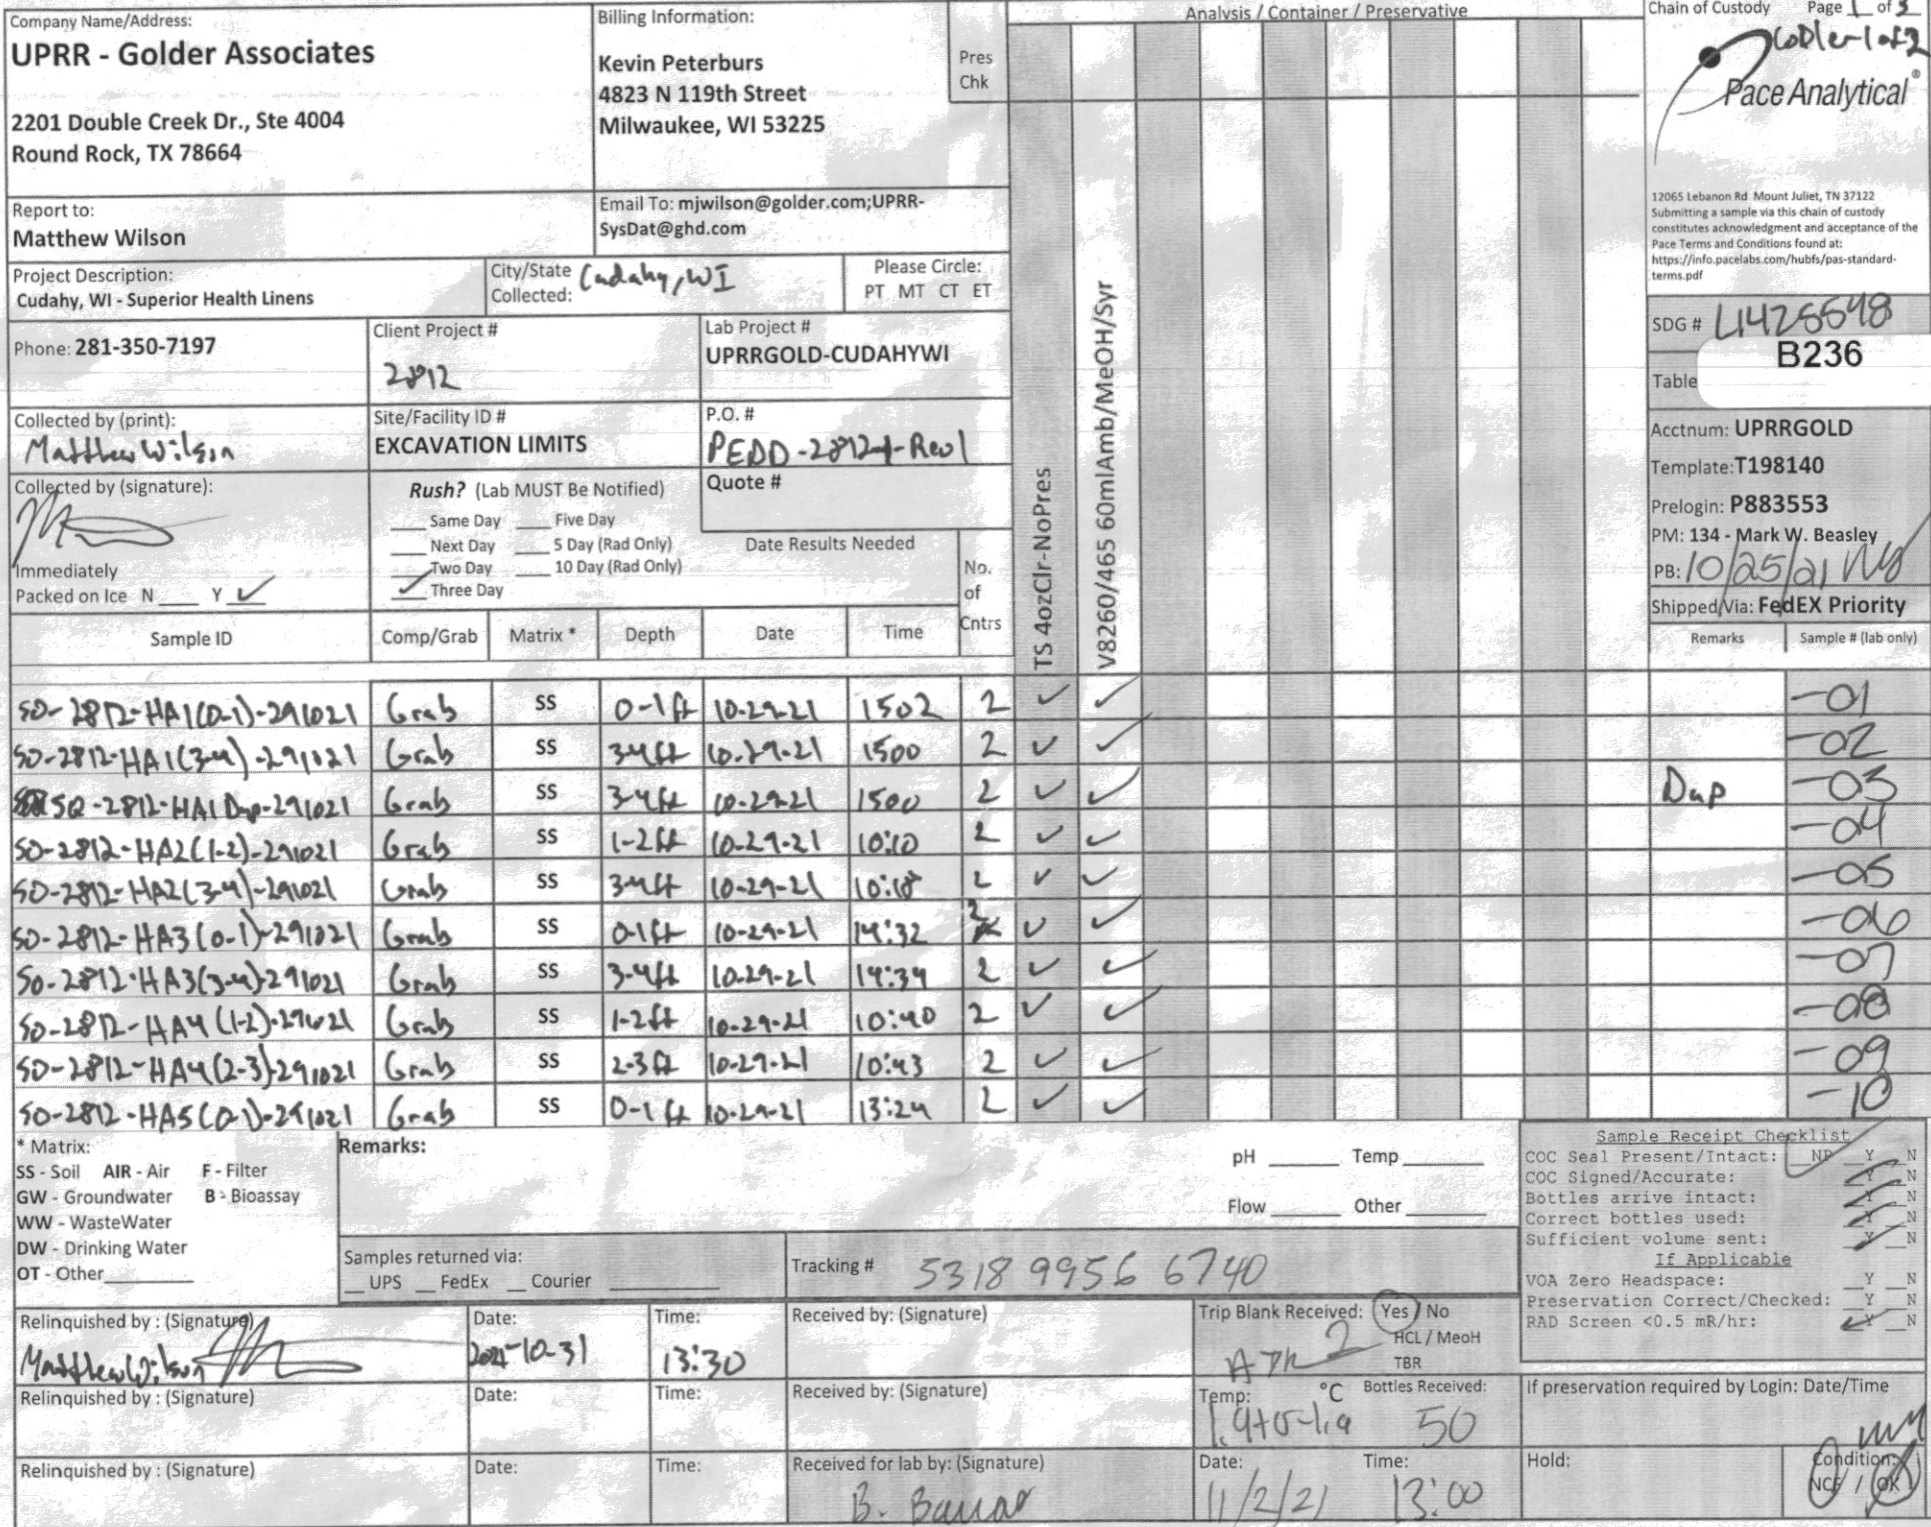 Company Name/Address:
UPRR - Golder Associates
2201 Double Creek Dr., Ste 4004
Round Rock, TX 78664
Billing Information:
Kevin Peterburs
4823 N 119th Street
Milwaukee, WI 53225
Pres
Chk
Analysis / Container / Preservative
Chain of Custody Page 1 of 3
Cooler-1of2
Pace Analytical®
12065 Lebanon Rd Mount Juliet, TN 37122
Submitting a sample via this chain of custody
constitutes acknowledgment and acceptance of the
Pace Terms and Conditions found at:
https://info.pacelabs.com/hubfs/pas-standard-
terms.pdf
Report to:
Matthew Wilson
Email To: mjwilson@golder.com;UPRR-
SysDat@ghd.com
Project Description:
Cudahy, WI - Superior Health Linens
City/State
Collected: Cudahy, WI
Please Circle:
PT MT CT ET
Phone: 281-350-7197
Client Project #
2812
Lab Project #
UPRRGOLD-CUDAHYWI
SDG # L1425548
B236
Table
Collected by (print):
Matthew Wilson
Site/Facility ID #
EXCAVATION LIMITS
P.O. #
Acctnum: UPRRGOLD
Template:T198140
Prelogin: P883553
PM: 134 - Mark W. Beasley
PB: 10/25/21
Shipped Via: FedEX Priority
Collected by (signature):
Rush? (Lab MUST Be Notified)
Quote #
___ Same Day ___ Five Day
___ Next Day ___ 5 Day (Rad Only)
___ Two Day ___ 10 Day (Rad Only)
✓ Three Day
Date Results Needed
Immediately
Packed on Ice N ___ Y ✓
No.
of
Cntrs
TS 4ozClr-NoPres
V8260/465 60mlAmb/MeOH/Syr
Sample ID Comp/Grab Matrix * Depth Date Time Remarks Sample # (lab only)
SO-2812-HA1(0-1)-291021 Grab SS 0-1ft 10-29-21 1502 2 ✓ ✓ -01
SO-2812-HA1(3-4)-291021 Grab SS 3-4ft 10-29-21 1500 2 ✓ ✓ -02
SO-2812-HA1Dup-291021 Grab SS 3-4ft 10-29-21 1500 2 ✓ ✓ Dup -03
SO-2812-HA2(1-2)-291021 Grab SS 1-2ft 10-29-21 10:10 2 ✓ ✓ -04
SO-2812-HA2(3-4)-291021 Grab SS 3-4ft 10-29-21 2 ✓ ✓ -05
SO-2812-HA3(0-1)-291021 Grab SS 0-1ft 10-29-21 14:32 2 ✓ ✓ -06
SO-2812-HA3(3-4)-291021 Grab SS 3-4ft 10-29-21 14:34 2 ✓ ✓ -07
SO-2812-HA4(1-2)-291021 Grab SS 1-2ft 10-29-21 10:40 2 ✓ ✓ -08
SO-2812-HA4(2-3)-291021 Grab SS 2-3ft 10-29-21 10:43 2 ✓ ✓ -09
SO-2812-HA5(0-1)-291021 Grab SS 0-1ft 10-29-21 13:24 2 ✓ ✓ -10
* Matrix:
SS - Soil AIR - Air F - Filter
GW - Groundwater B - Bioassay
WW - WasteWater
DW - Drinking Water
OT - Other
Remarks:
pH ___ Temp ___
Flow ___ Other ___
Sample Receipt Checklist
COC Seal Present/Intact: NP Y N
COC Signed/Accurate: Y N
Bottles arrive intact: Y N
Correct bottles used: Y N
Sufficient volume sent: Y N
If Applicable
VOA Zero Headspace: Y N
Preservation Correct/Checked: Y N
RAD Screen <0.5 mR/hr: Y N
Samples returned via:
__ UPS __ FedEx __ Courier
Tracking # 5318 9956 6740
Relinquished by : (Signature)
Matthew Wilson
Date:
2021-10-31
Time:
13:30
Received by: (Signature)
Trip Blank Received: Yes / No
2
HCL / MeoH
TBR
Relinquished by : (Signature)
Date:
Time:
Received by: (Signature)
Temp: °C Bottles Received:
1.9+0=1.9 50
If preservation required by Login: Date/Time
Relinquished by : (Signature)
Date:
Time:
Received for lab by: (Signature)
B.
Date:
11/2/21
Time:
13:00
Hold:
Condition:
NCF / OK